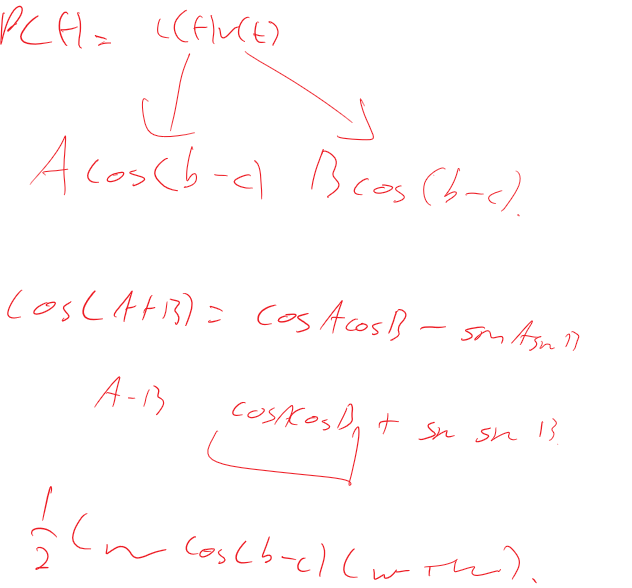 P(t)= i(t)v(t)
A cos(b-c) B cos(b-c).
cos(A+B) = cosAcosB - sinAsinB
A-B cosAcosB + sin sin B
1/2 ( cos(b-c) (